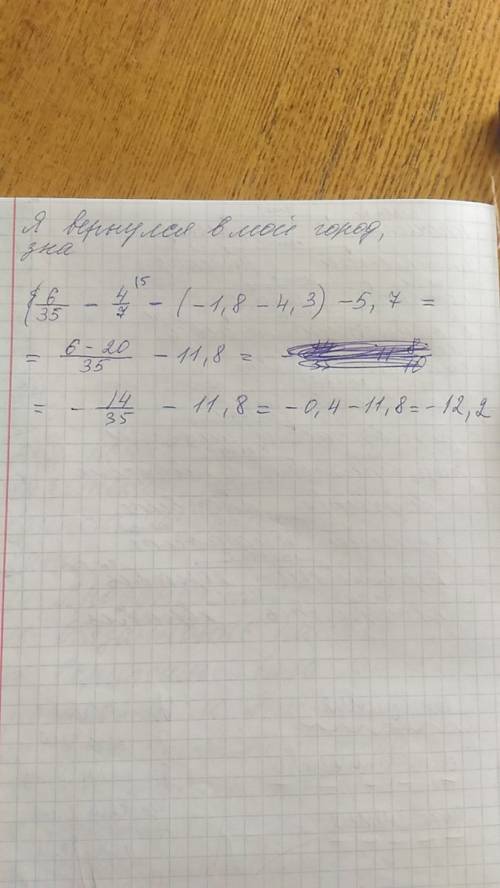 Я вернулся в мой город,
зна
6/35 - 4/7 ¹⁵ - (-1,8 - 4,3) - 5,7 =
= 6-20/35 - 11,8 =
= - 14/35 - 11,8 = -0,4-11,8=-12,2